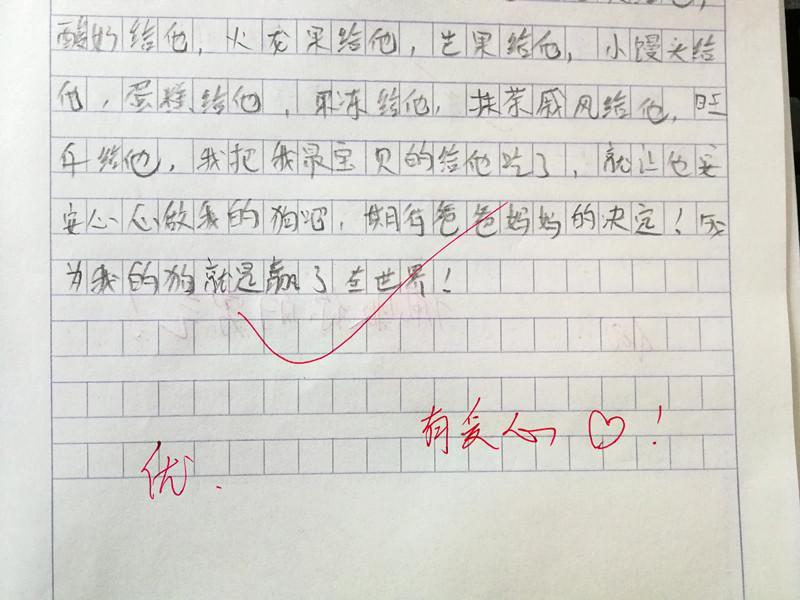 酸奶给他，火龙果给他，芒果给他，小馒头给
他，蛋糕给他，果冻给他，抹茶戚风给他，旺
仔给他，我把我最宝贝的给他吃了，就让他安
安心心做我的狗吧，期待爸爸妈妈的决定！成
为我的狗就是赢了全世界！
有爱心♡！
优.